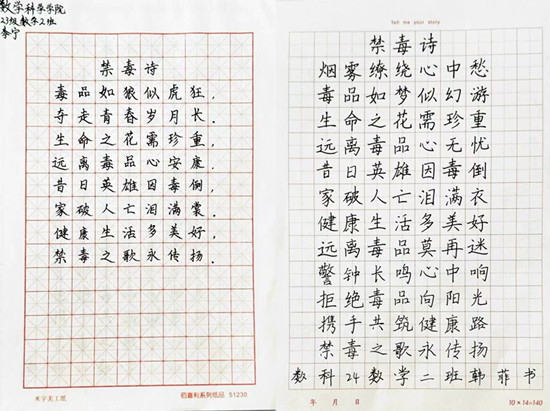 数学科学学院
23级数学2班
李宁
禁毒诗
毒品如狼似虎狂，
夺走青春岁月长．
生命之花需珍重，
远离毒品心安康．
昔日英雄因毒倒，
家破人亡泪满裳．
健康生活多美好，
禁毒之歌永传扬．
米字美工纸
佰嘉利系列纸品 51230
Tell me your story
禁毒诗
烟雾缭绕心中愁
毒品如梦似幻游
生命之花需珍重
远离毒品心无忧
昔日英雄因毒倒
家破人亡泪满衣
健康生活多美好
远离毒品莫再迷
警钟长鸣心中响
拒绝毒品向阳光
携手共筑健康路
禁毒之歌永传扬
数科24数学二班韩菲书
年 月 日
10×14=140